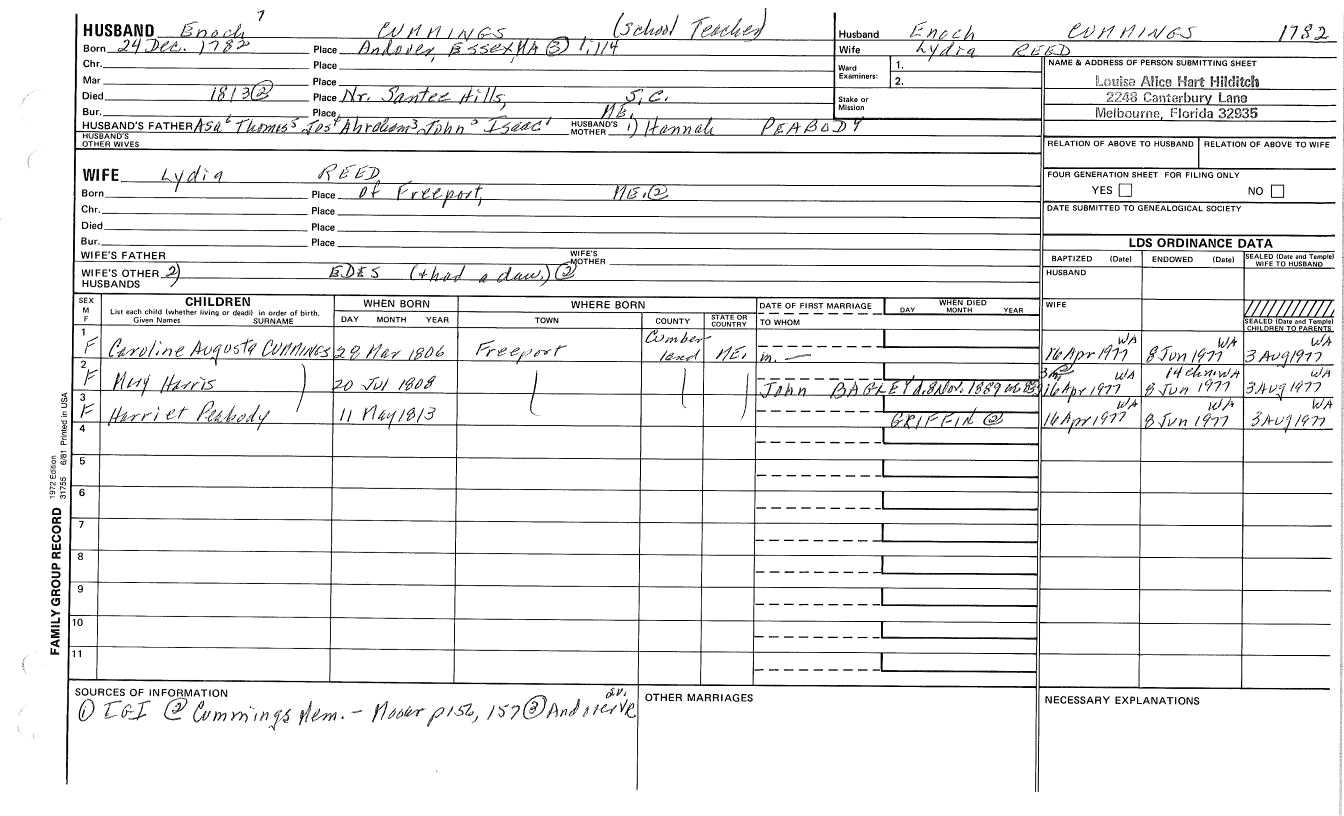 HUSBAND Enoch 7 CUMMINGS (School Teacher)
Born 24 Dec. 1782 Place Andover, Essex, MA ③ 1;114
Chr. Place
Mar Place
Died 1813② Place Nr. Santee Hills, S.C.
Bur. Place ME.
HUSBAND'S FATHER Asa⁶ Thomas⁵ Jos⁴ Abraham³ John² Isaac¹ HUSBAND'S MOTHER 1) Hannah PEABODY
HUSBAND'S OTHER WIVES
WIFE Lydia REED
Born Place Of Freeport, ME.②
Chr. Place
Died Place
Bur. Place
WIFE'S FATHER WIFE'S MOTHER
WIFE'S OTHER HUSBANDS 2) EDES (+ had a dau.) ②
Husband Enoch CUMMINGS 1782
Wife Lydia REED
Ward Examiners: 1.
2.
Stake or Mission
NAME & ADDRESS OF PERSON SUBMITTING SHEET
Louise Alice Hart Hilditch
2248 Canterbury Lane
Melbourne, Florida 32935
RELATION OF ABOVE TO HUSBAND RELATION OF ABOVE TO WIFE
FOUR GENERATION SHEET FOR FILING ONLY
YES NO
DATE SUBMITTED TO GENEALOGICAL SOCIETY
LDS ORDINANCE DATA
BAPTIZED (Date) ENDOWED (Date) SEALED (Date and Temple) WIFE TO HUSBAND
HUSBAND
WIFE
SEALED (Date and Temple) CHILDREN TO PARENTS
SEX M F CHILDREN WHEN BORN WHERE BORN DATE OF FIRST MARRIAGE WHEN DIED
List each child (whether living or dead) in order of birth. DAY MONTH YEAR TOWN COUNTY STATE OR COUNTRY TO WHOM DAY MONTH YEAR
Given Names SURNAME
1 F Caroline Augusta CUMMINGS 29 Mar 1806 Freeport Cumberland ME. m. — 16 Apr 1977 WA 8 Jun 1977 WA 3 Aug 1977 WA
2 F Mary Harris 20 Jul 1808 John BAGLEY d. 8 Nov. 1889 16 Apr 1977 WA 8 Jun 1977 WA 3 Aug 1977 WA
3 F Harriet Peabody 11 May 1813 GRIFFIN ② 16 Apr 1977 WA 8 Jun 1977 WA 3 Aug 1977 WA
4
5
6
7
8
9
10
11
FAMILY GROUP RECORD 1972 Edition 31755 6/81 Printed in USA
SOURCES OF INFORMATION
① IGI ② Cummings Mem. - Mooar p156, 157 ③ Andover
OTHER MARRIAGES
NECESSARY EXPLANATIONS